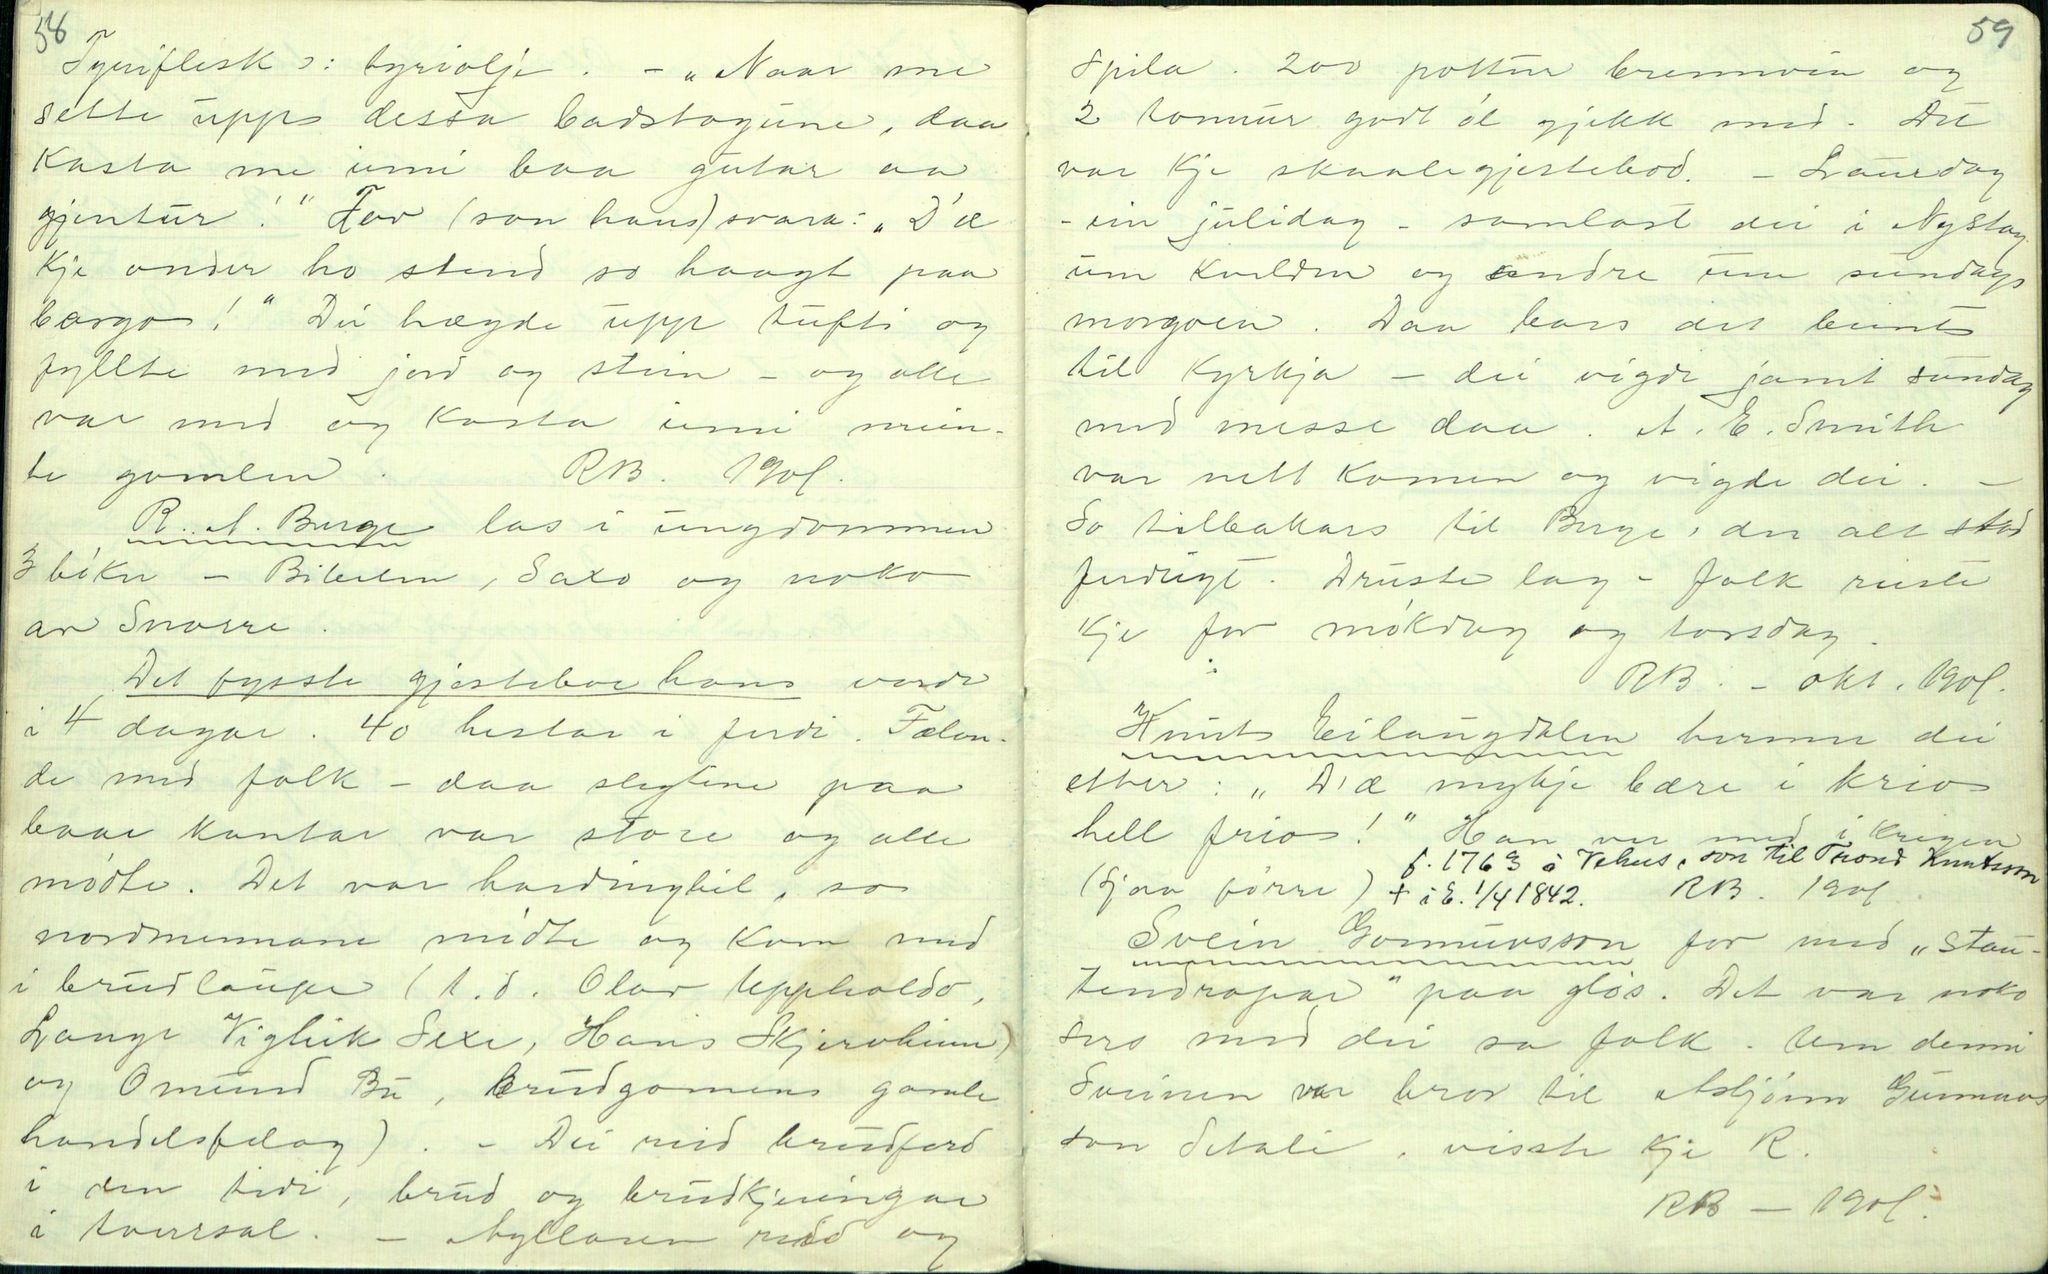 58
Tyriflesk ɔ: tyriolje. - „Naar me
sette upp dessa badstogune, daa
kasta me inni baa gutar aa
gjentur!" Tov (son hans) svara: „D'æ
kje onder ho stend so haagt paa
bergo!" Dei hægde upp tufti og
fyllte med jord og stein - og alle
var med og kasta inni mein-
te gamlen. RB. 1901.
R. A. Berge las i ungdommen
3 bøker - Bibelen, Saxo og noko
av Snorre.
Det fysste gjesteboe hans varde
i 4 dagar. 40 hestar i ferdi. Fælan-
de med folk - daa slegtene paa
baae kantar var store og alle
møtte. Det var hardingbil, so
nordmennane møtte og kom med
i brudlaupe (t.d. Olav Uppheldo,
Lange Vigleik Sexe, Hans Skjervheim)
og Omund Bu, brudgomens gamle
handelsfelag). - Dei reid brudferd
i den tidi, brud og brudkjeringar
i tverrsal. - Spellaren reid og
59
spila. 200 pottur brennvin og
2 tonnur godt øl gjekk med. Det
var kje skaalegjestebod. - Laurdag
- ein julidag - samlast dei i Nystog
um kvelden og andre um sundags
morgoen. Daa bars det beint
til kyrkja - dei vigde jamt sundag
med messe daa. A. E. Smith
var nett komen og vigde dei. -
So tilbakars til Berge, der alt stod
ferdugt. Druste lag - folk reiste
kje for mókdag og torsdag.
RB. - okt. 1901.
Knut Eilaugdalen herme dei
etter: „D'æ mykje bære i krio
hell frio!" Han var med i krigen
f. 1763 å Vehus, son til Trond Knutsson
(sjaa förre) + i E. 1/4 1842. RB. 1901.
Svein Gonnarsson for med „stau-
tendrapar" paa gløs. Det var noko
sers med dei sa folk. Um denni
Sveinen var bror til Asbjønn Gunnars
son Setali, visste kje R.
RB - 1901.